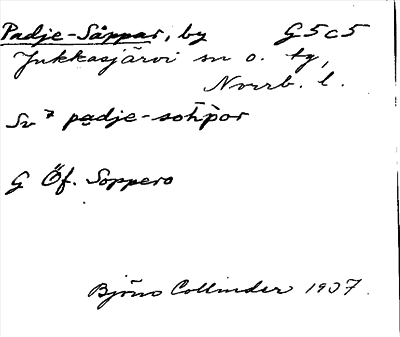 Padje-Såppar, by G5c5
Jukkasjärvi sn o. tg,
Norrb. l.
padje-sohpor
G Öf. Soppero
Björn Collinder 1907.